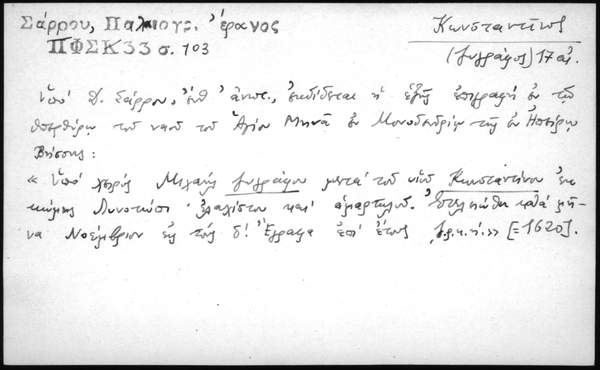 Σάρρου, Παλαιογρ. ἔρανος
ΠΦΣΚ33 σ. 103
Κωνσταντῖνος
(ζωγράφος) 17 αἰ.
Ὑπὸ Δ. Σάρρου, ἔνθ' ἀνωτ., ἐκδίδεται ἡ ἑξῆς ἐπιγραφὴ ἐν τῷ
ὑπερθύρῳ τοῦ ναοῦ τοῦ Ἁγίου Μηνᾶ ἐν Μονοδενδρίῳ τῆς ἐν Ἠπείρῳ
Βήσσης :
« Ὑπὸ χειρὸς Μιχαὴλ ζωγράφου μετὰ τοῦ υἱοῦ Κωνσταντίνου ἐκ
κώμης Λινοτόπι ἐλαχίστου καὶ ἁμαρτωλοῦ. Ἐτελειώθη κατὰ μῆ-
να Νοέμβριον εἰς τοὺς δ'. Ἔγραψα ἐπὶ ἔτους ͵ζ.ρ.κ.η'.» [=1620].